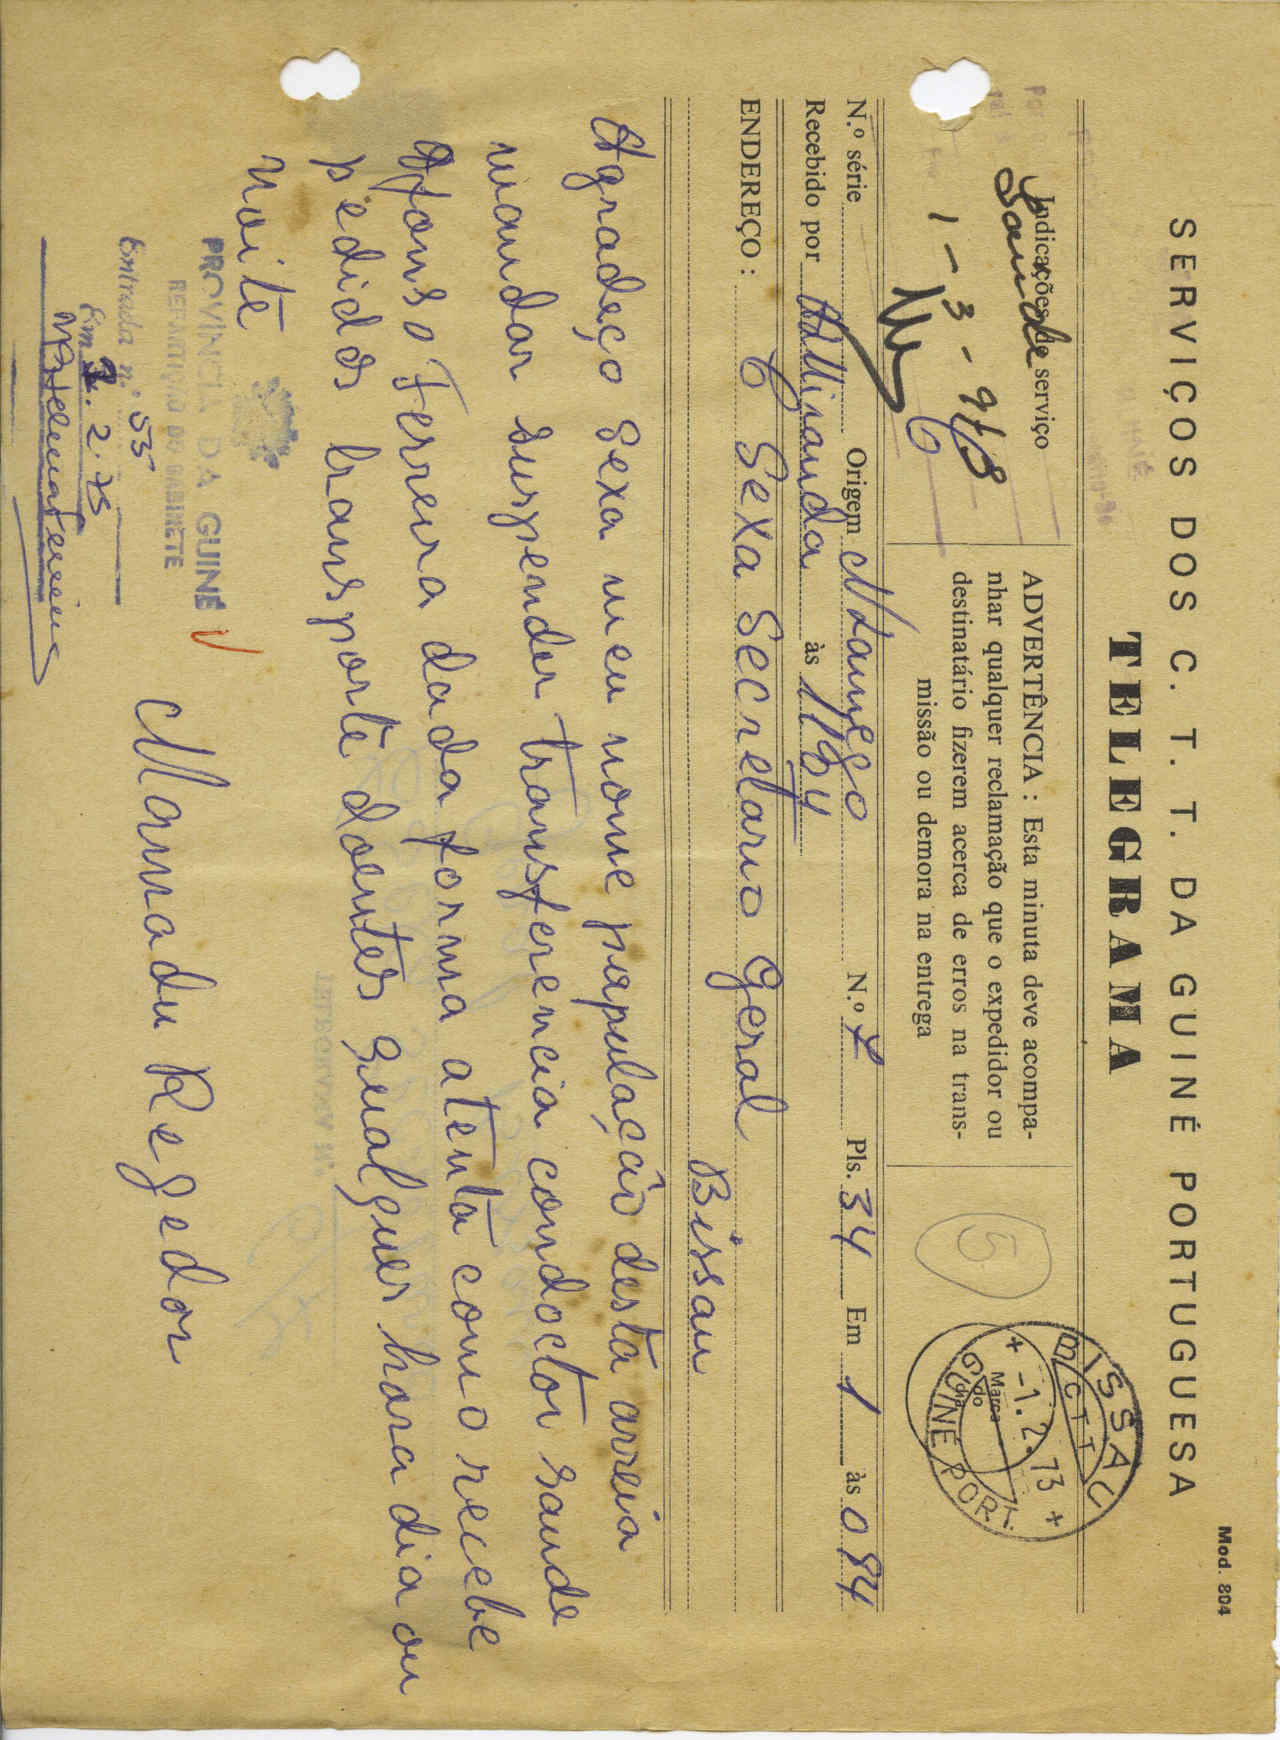 Mod. 804
SERVIÇOS DOS C. T. T. DA GUINÉ PORTUGUESA
TELEGRAMA
Indicações de serviço
Saude
1-3-
ADVERTÊNCIA : Esta minuta deve acompa-
nhar qualquer reclamação que o expedidor ou
destinatário fizerem acerca de erros na trans-
missão ou demora na entrega
5
BISSAU
CTT
-1.2.73
Marca
do
dia
GUINÉ PORT.
N.º série Origem N.º Pls. 34 Em 1 às 084
Recebido por AMiranda às
ENDEREÇO : Sexa Secretario Geral
Bissau
Agradeço Sexa meu nome papulação desta arreia
mandar suspender transferencia comdoctor saude
Afonso Ferreira dada forma atenta como recebe
pedidos transporte doentes qualquer hora dia ou
noite
Mamadu Regedor
PROVINCIA DA GUINÉ
REPARTIÇÃO DO GABINETE
Entrada n.º 53
Em 2.